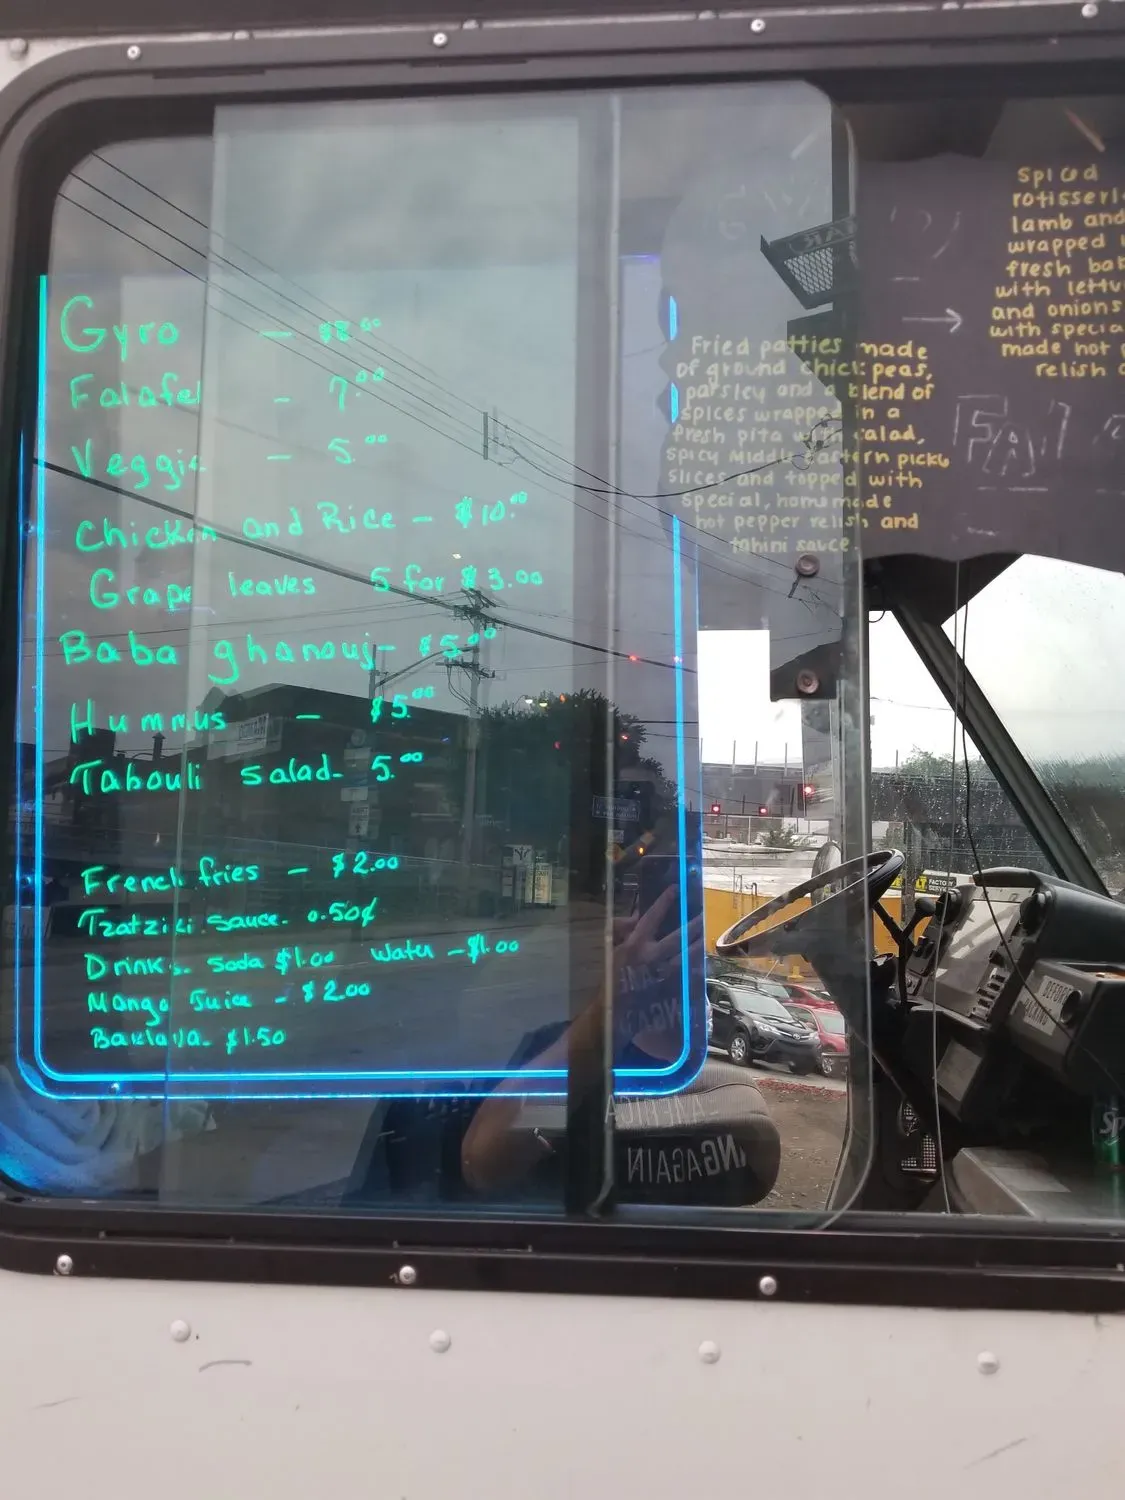 Gyro — $8.00
Falafel - 7.00
Veggie - 5.00
Chicken and Rice - $10.00
Grape leaves 5 for $3.00
Baba ghanouj- $5.00
Hummus - $5.00
Tabouli Salad- 5.00
French fries - $2.00
Tzatziki Sauce- 0.50¢
Drinks. Soda $1.00 Water - $1.00
Mango Juice - $2.00
Baklava- $1.50
Fried patties made
of ground chick peas,
parsley and a blend of
spices wrapped in a
fresh pita with salad,
spicy Middle Eastern pickle
slices and topped with
special, homemade
hot pepper relish and
tahini sauce.
Spiced
lamb and
wrapped
fresh
with
and onions
with
made hot
relish
FACTORY
BEFORE
AGAIN